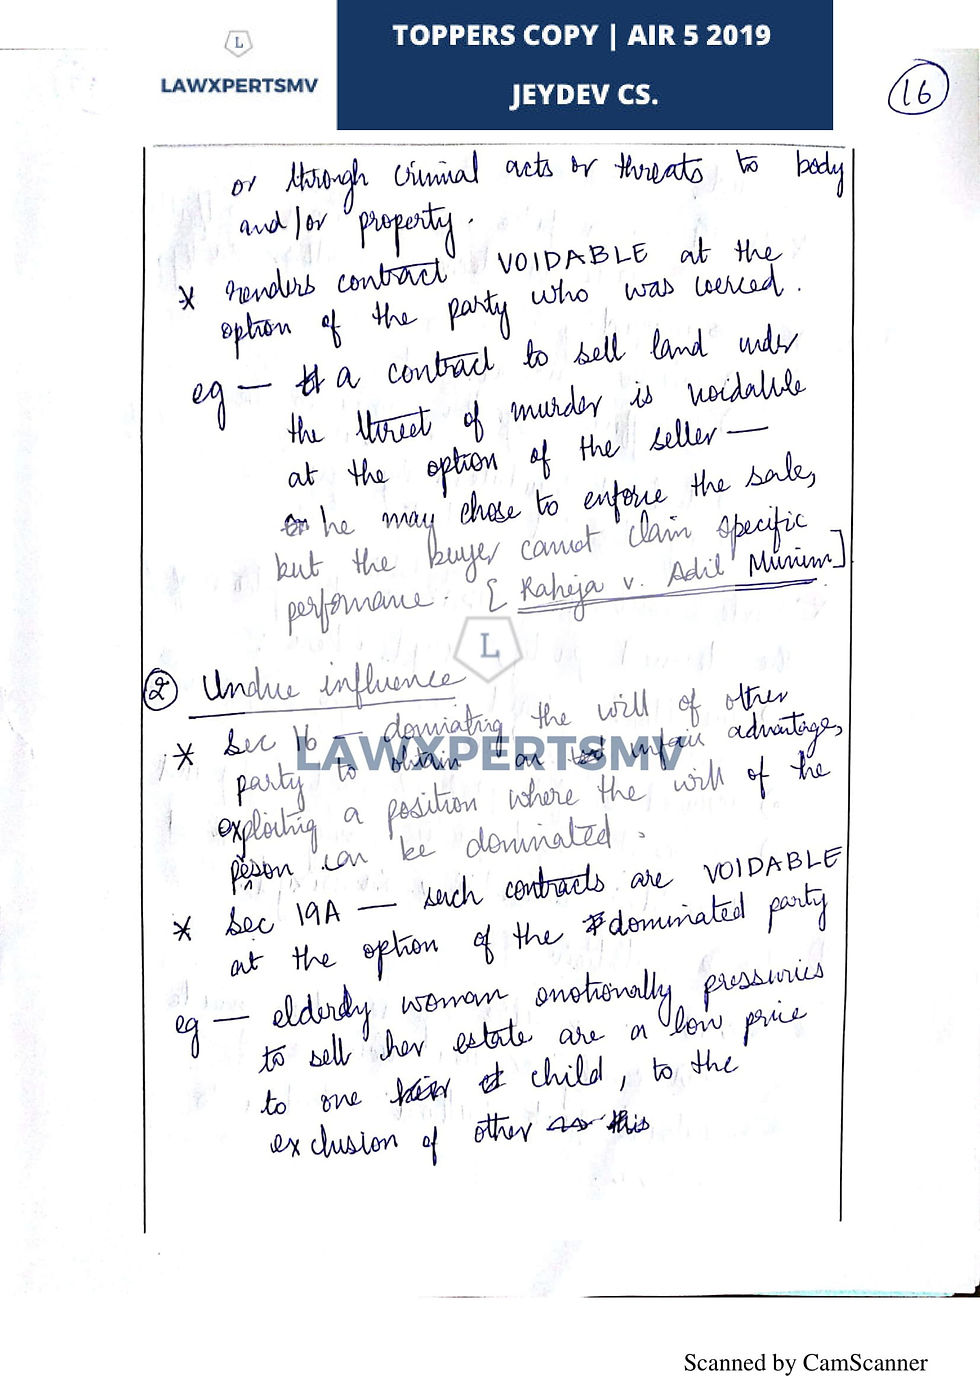 TOPPERS COPY | AIR 5 2019
JEYDEV CS.
L
LAWXPERTSMV
16
or through criminal acts or threats to body
and/or property.
* renders contract VOIDABLE at the
option of the party who was coerced.
eg — a contract to sell land under
the threat of murder is voidable
at the option of the seller —
he may chose to enforce the sale,
but the buyer cannot claim specific
performance. [Raheja v. Adil Munim]
L
② Undue influence
* Sec 16 — domiating the will of other
LAWXPERTSMV
party to obtain an unfair advantage,
exploiting a position where the will of the
person can be dominated.
* Sec 19A — such contracts are VOIDABLE
at the option of the dominated party
eg — elderly woman emotionally pressuries
to sell her estate are a low price
to one child, to the
exclusion of other
Scanned by CamScanner